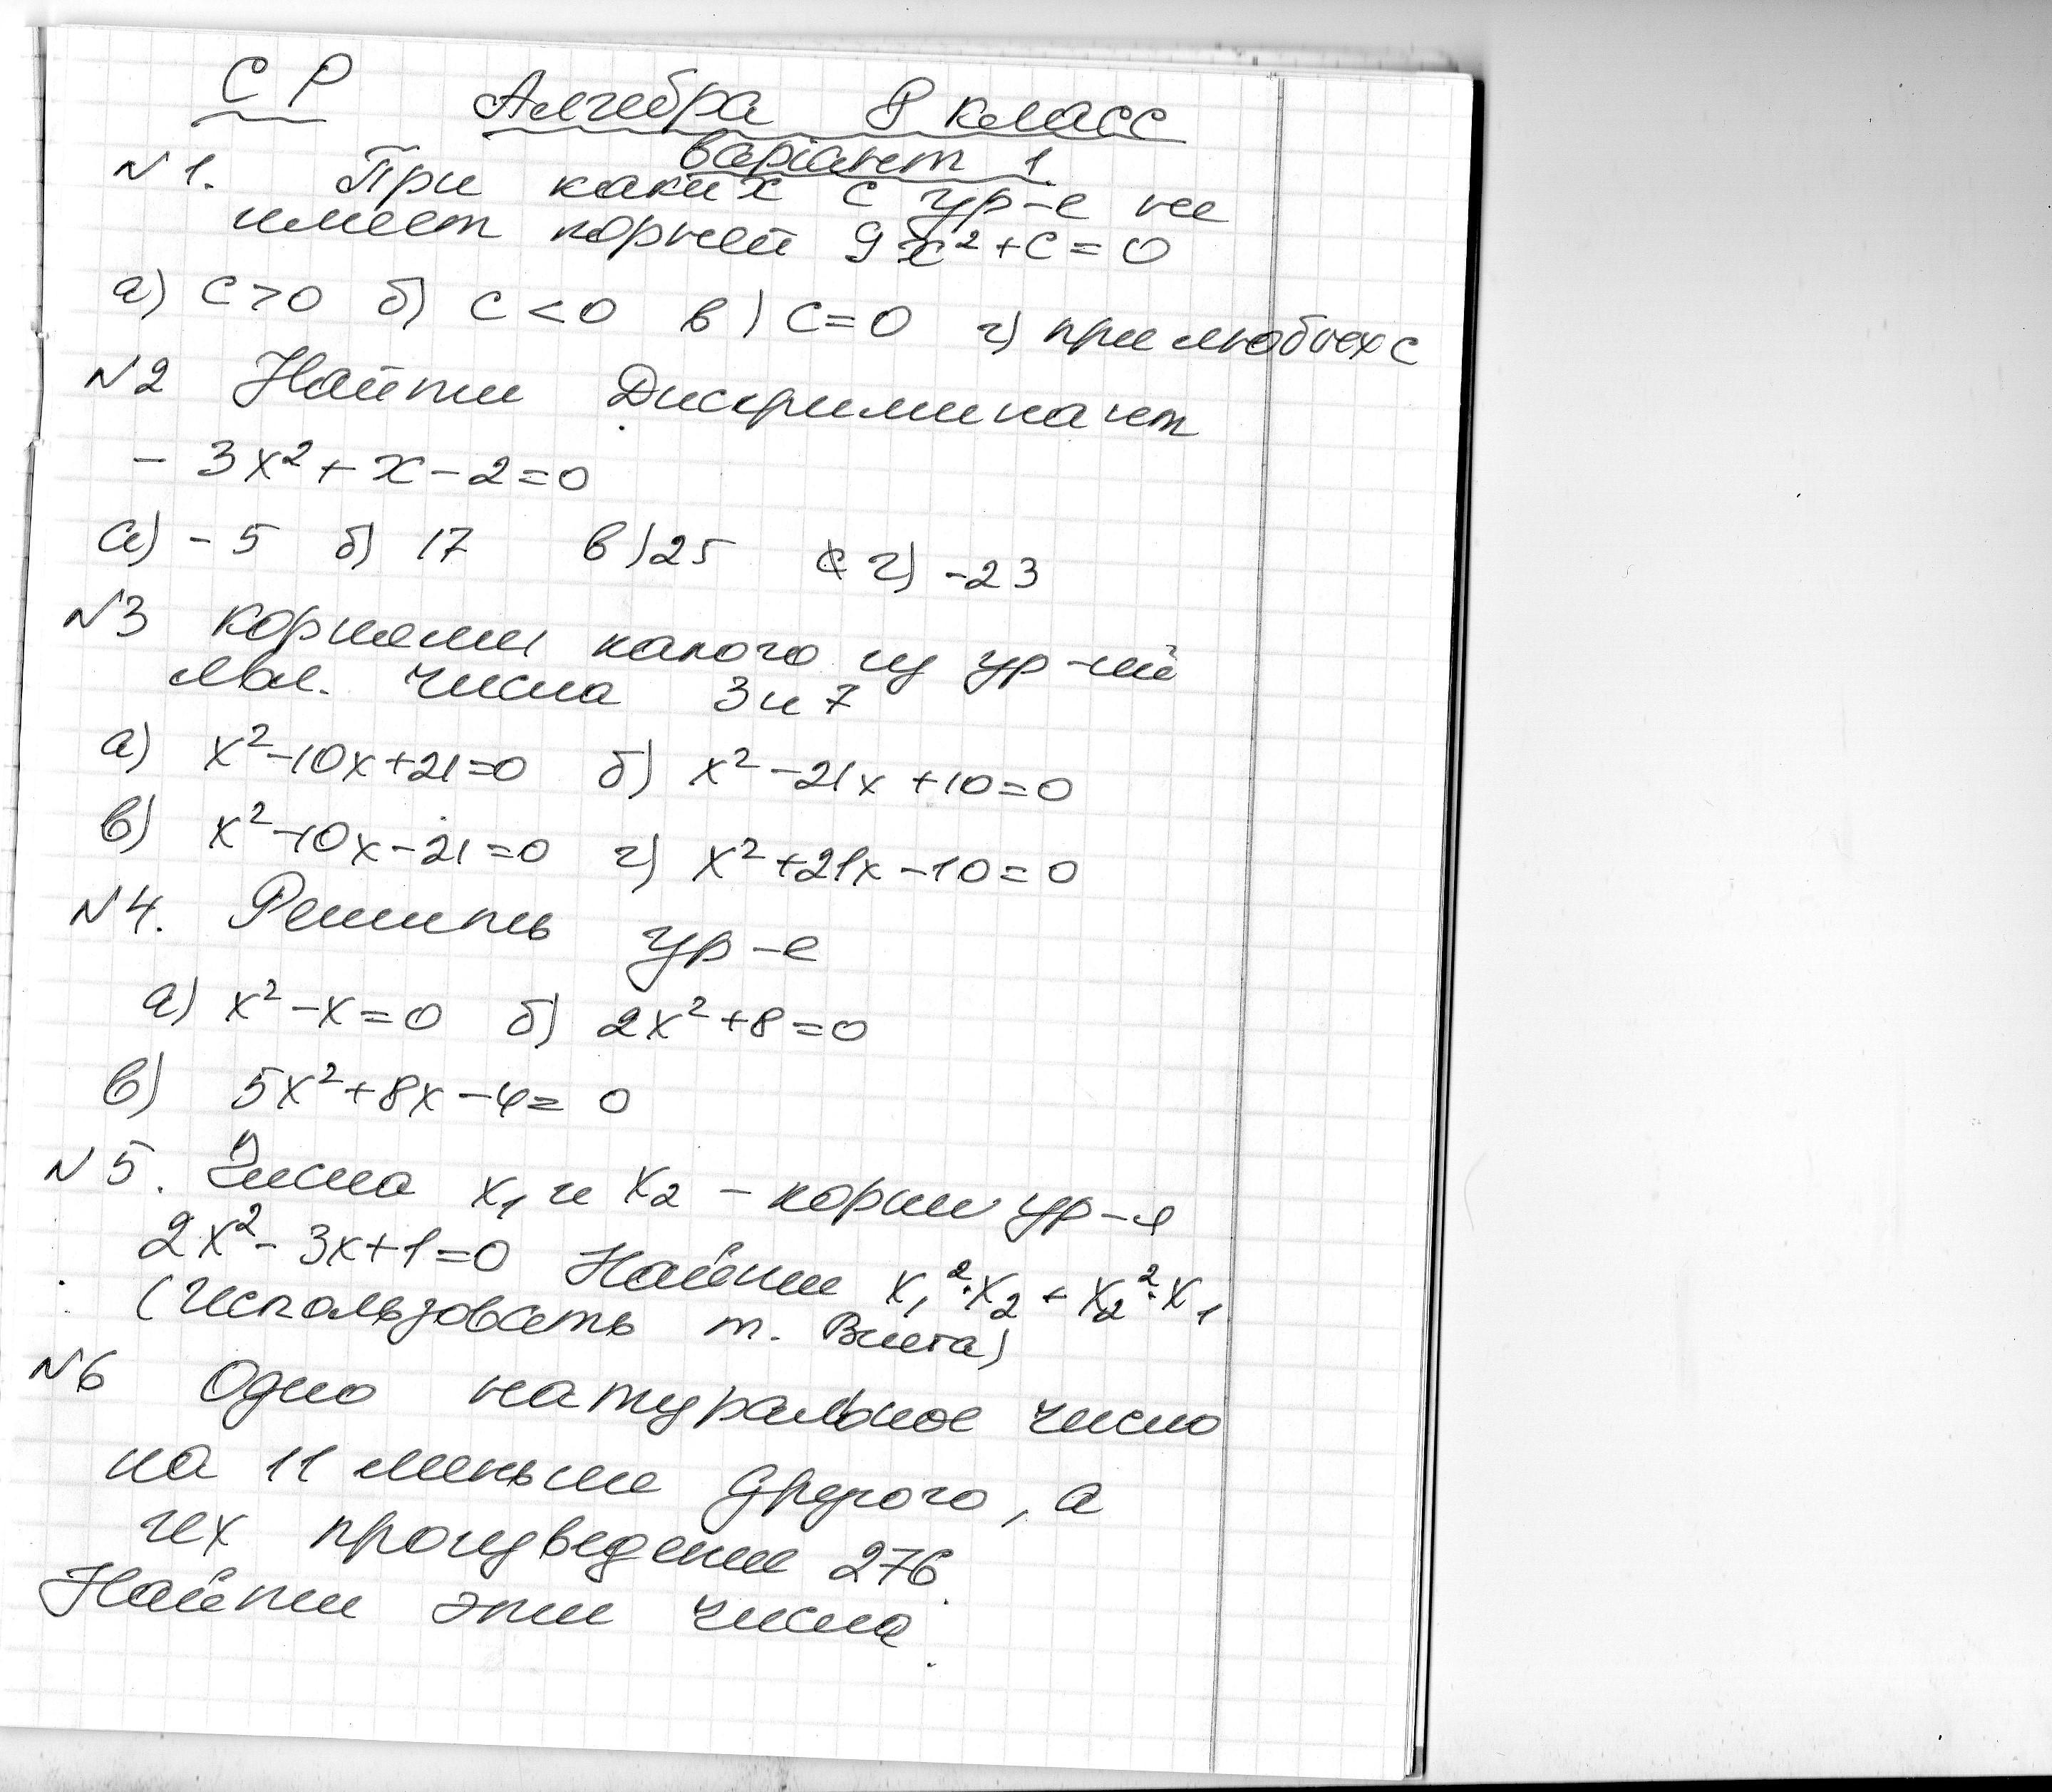 СР Алгебра 8 класс
вариант 1
№1. При каких с ур-е не
имеет корней 9x²+c=0
а) c>0 б) c<0 в) c=0 г) при любых с
№2 Найти Дискриминант
-3x²+x-2=0
а) -5 б) 17 в) 25 г) -23
№3 Корнями какого из ур-ий
явл. числа 3 и 7
а) x²-10x+21=0 б) x²-21x+10=0
в) x²-10x-21=0 г) x²+21x-10=0
№4. Решить ур-е
а) x²-x=0 б) 2x²+8=0
в) 5x²+8x-4=0
№5. Числа x₁ и x₂ - корни ур-я
2x²-3x+1=0 Найти x₁²·x₂+x₂²·x₁
(Использовать т. Виета)
№6 Одно натуральное число
на 11 меньше другого, а
их произведение 276.
Найти эти числа.